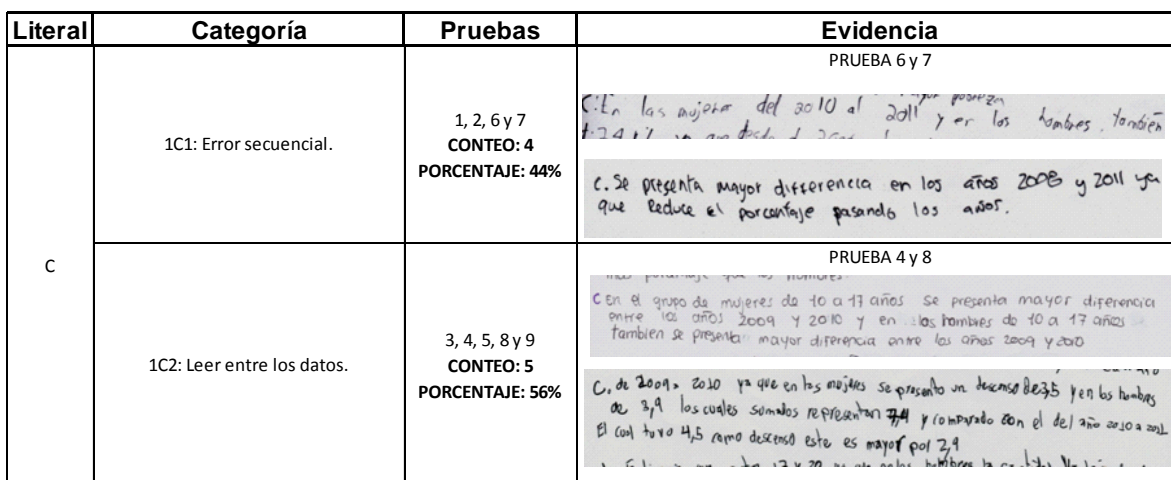 Literal Categoría Pruebas Evidencia
C
1C1: Error secuencial.
1, 2, 6 y 7
CONTEO: 4
PORCENTAJE: 44%
PRUEBA 6 y 7
C: En las mujeres del 2010 al 2011 y en los hombres también
C. Se presenta mayor differencia en los años 2008 y 2011 ya
que Reduce el porcentaje pasando los años.
1C2: Leer entre los datos.
3, 4, 5, 8 y 9
CONTEO: 5
PORCENTAJE: 56%
PRUEBA 4 y 8
C En el grupo de mujeres de 10 a 17 años se presenta mayor diferencia
entre los años 2009 y 2010 y en los hombres de 10 a 17 años
tambien se presenta mayor diferencia entre los años 2009 y 2010
C. de 2009 a 2010 ya que en las mujeres se presento un descenso de 3,5 y en los hombres
de 3,9 los cuales sumados representan 7,4 y comparado con el del año 2010 a 2011
El cual tuvo 4,5 como descenso este es mayor por 2,9